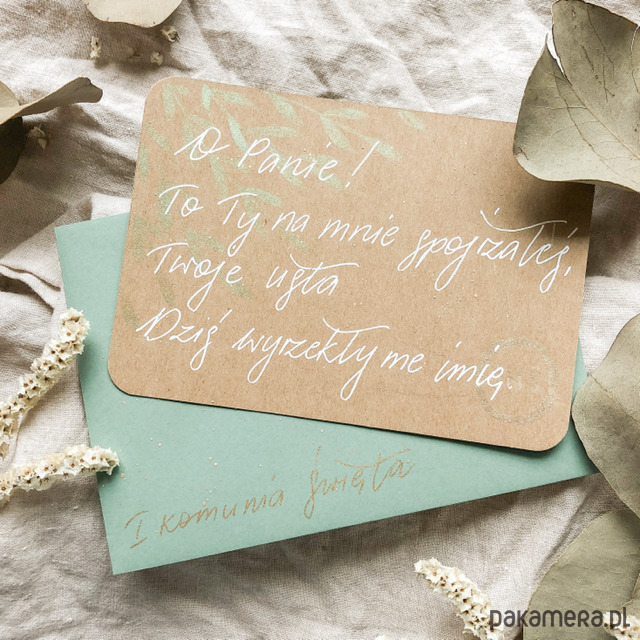 O Panie!
To Ty na mnie spojrżałeś,
Twoje usta
Dziś wyrzekły me imię.
I komunia Święta
pakamera.pl